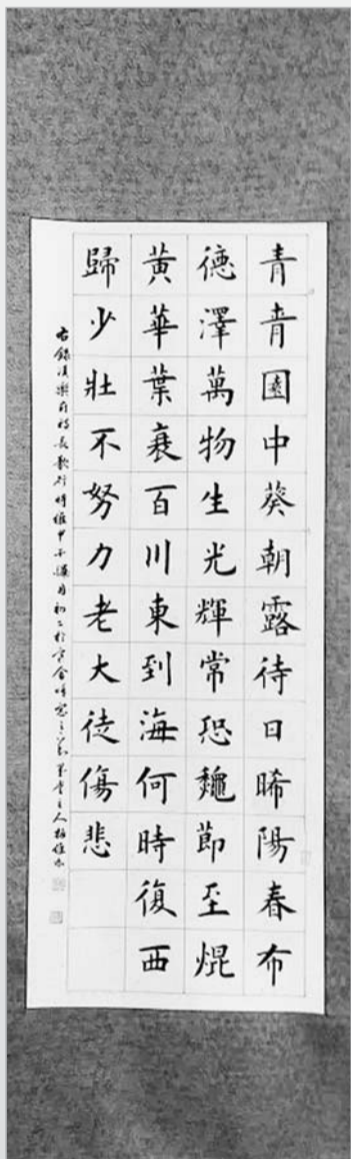 青青園中葵朝露待日晞陽春布
德澤萬物生光輝常恐龝節至焜
黃華葉衰百川東到海何時復西
歸少壯不努力老大徒傷悲
右錄漢樂府詩長歌行時維甲午臘月初二於京